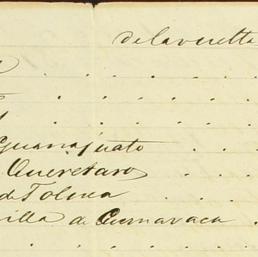 de la vuelta
Guanajuato
Queretaro
de Toluca
villa de Cuernavaca